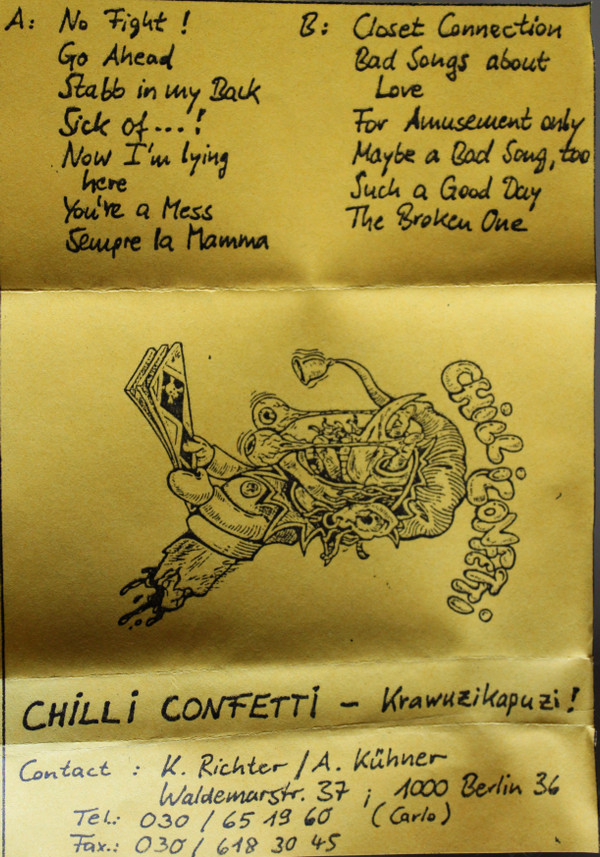 A: No Fight!
Go Ahead
Stabb in my Back
Sick of...!
Now I'm lying
here
You're a Mess
Sempre la Mamma
B: Closet Connection
Bad Songs about
Love
For Amusement only
Maybe a Bad Song, too
Such a Good Day
The Broken One
CHiLLi CONFETTi
CHiLLi CONFETTi - Krawuzikapuzi!
Contact : K. Richter / A. Kühner
Waldemarstr. 37 ; 1000 Berlin 36
Tel.: 030 / 65 19 60 (Carlo)
Fax.: 030 / 618 30 45